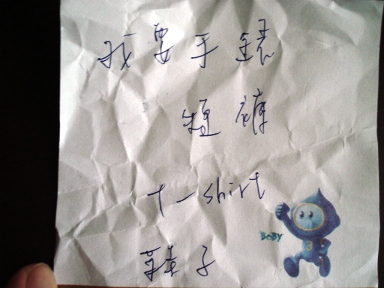 我要手錶
短褲
T-shirt
BOBY
鞋子